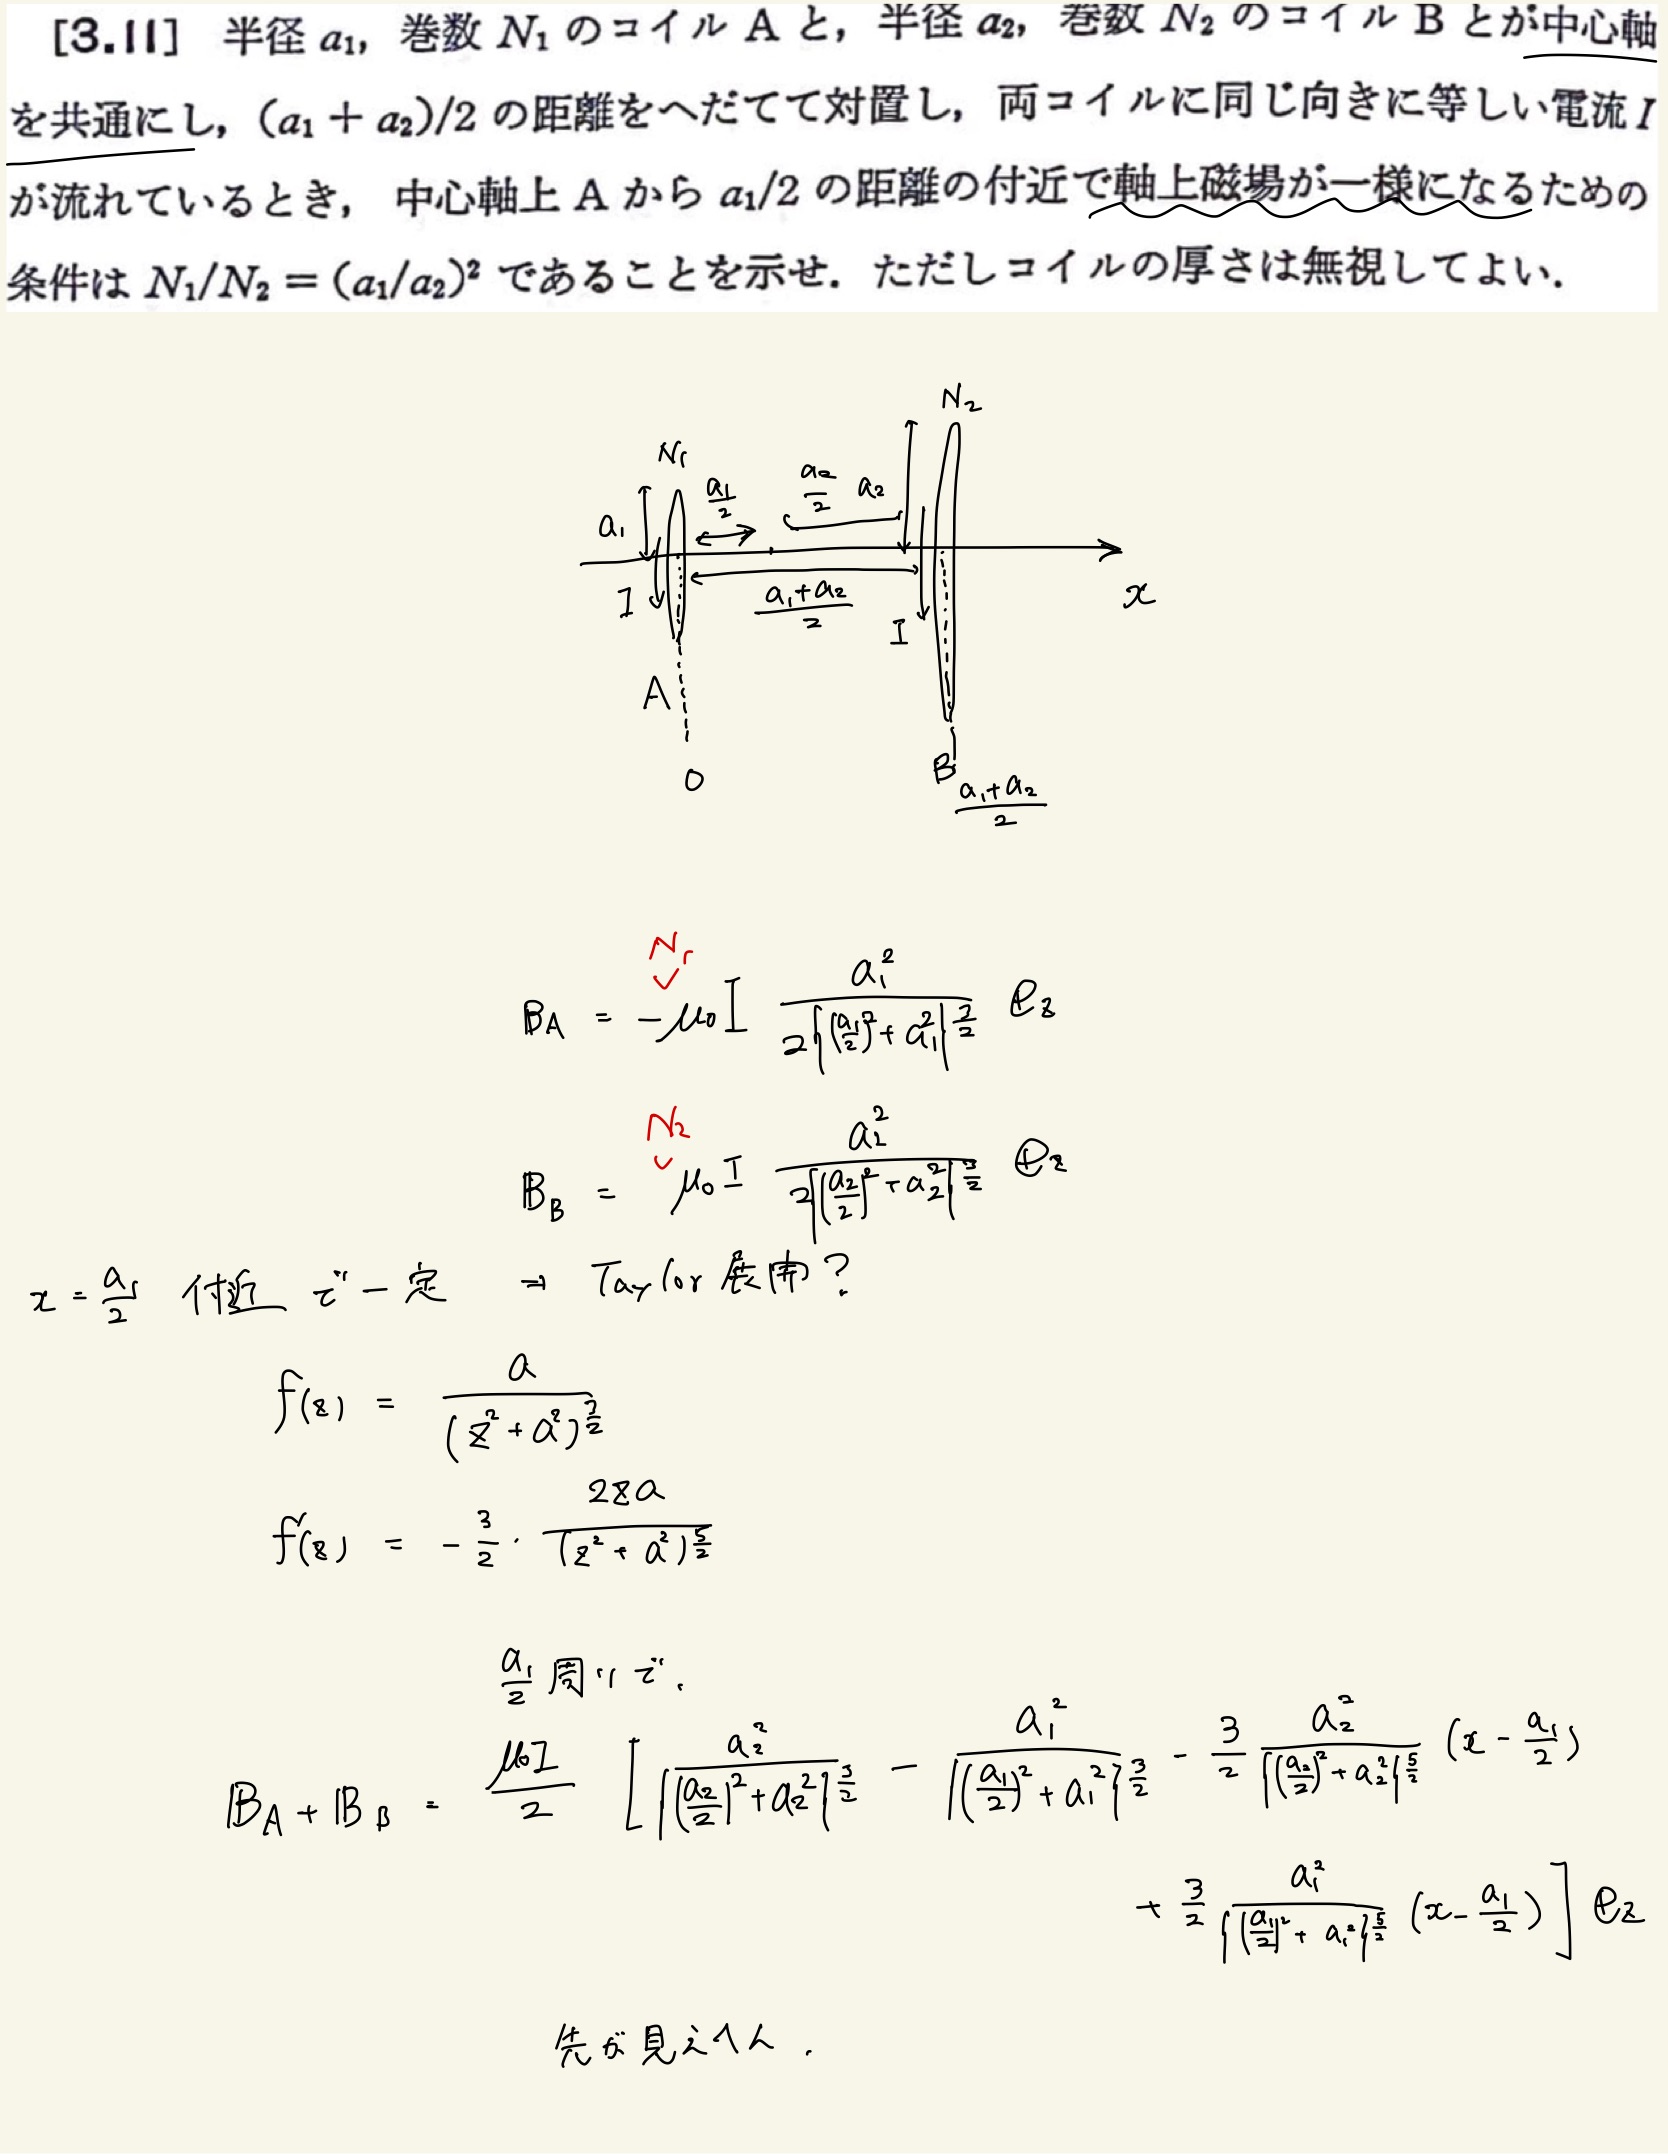 [3.11] 半径 a₁, 巻数 N₁ のコイル A と, 半径 a₂, 巻数 N₂ のコイル B とが中心軸
を共通にし, (a₁ + a₂)/2 の距離をへだてて対置し, 両コイルに同じ向きに等しい電流 I
が流れているとき, 中心軸上 A から a₁/2 の距離の付近で軸上磁場が一様になるための
条件は N₁/N₂ = (a₁/a₂)² であることを示せ. ただしコイルの厚さは無視してよい.
N₂
N₁
a₁/2
a₂/2
a₂
a₁
I
(a₁+a₂)/2
I
x
A
B
O
(a₁+a₂)/2
N₁
B_A = -μ₀I a₁²/(2{(a₁/2)²+a₁²}^(3/2)) e_z
N₂
B_B = μ₀I a₂²/(2{(a₂/2)²+a₂²}^(3/2)) e_z
x = a₁/2 付近で一定 → Taylor 展開?
f(z) = a/(z²+a²)^(3/2)
f'(z) = -3/2 · 2za/(z²+a²)^(5/2)
a₁/2 周りで.
B_A + B_B = μ₀I/2 [ a₂²/{(a₂/2)²+a₂²}^(3/2) - a₁²/{(a₁/2)²+a₁²}^(3/2) - 3/2 a₂²/{(a₂/2)²+a₂²}^(5/2) (x - a₁/2)
+ 3/2 a₁²/{(a₁/2)²+a₁²}^(5/2) (x - a₁/2) ] e_z
先が見えへん.